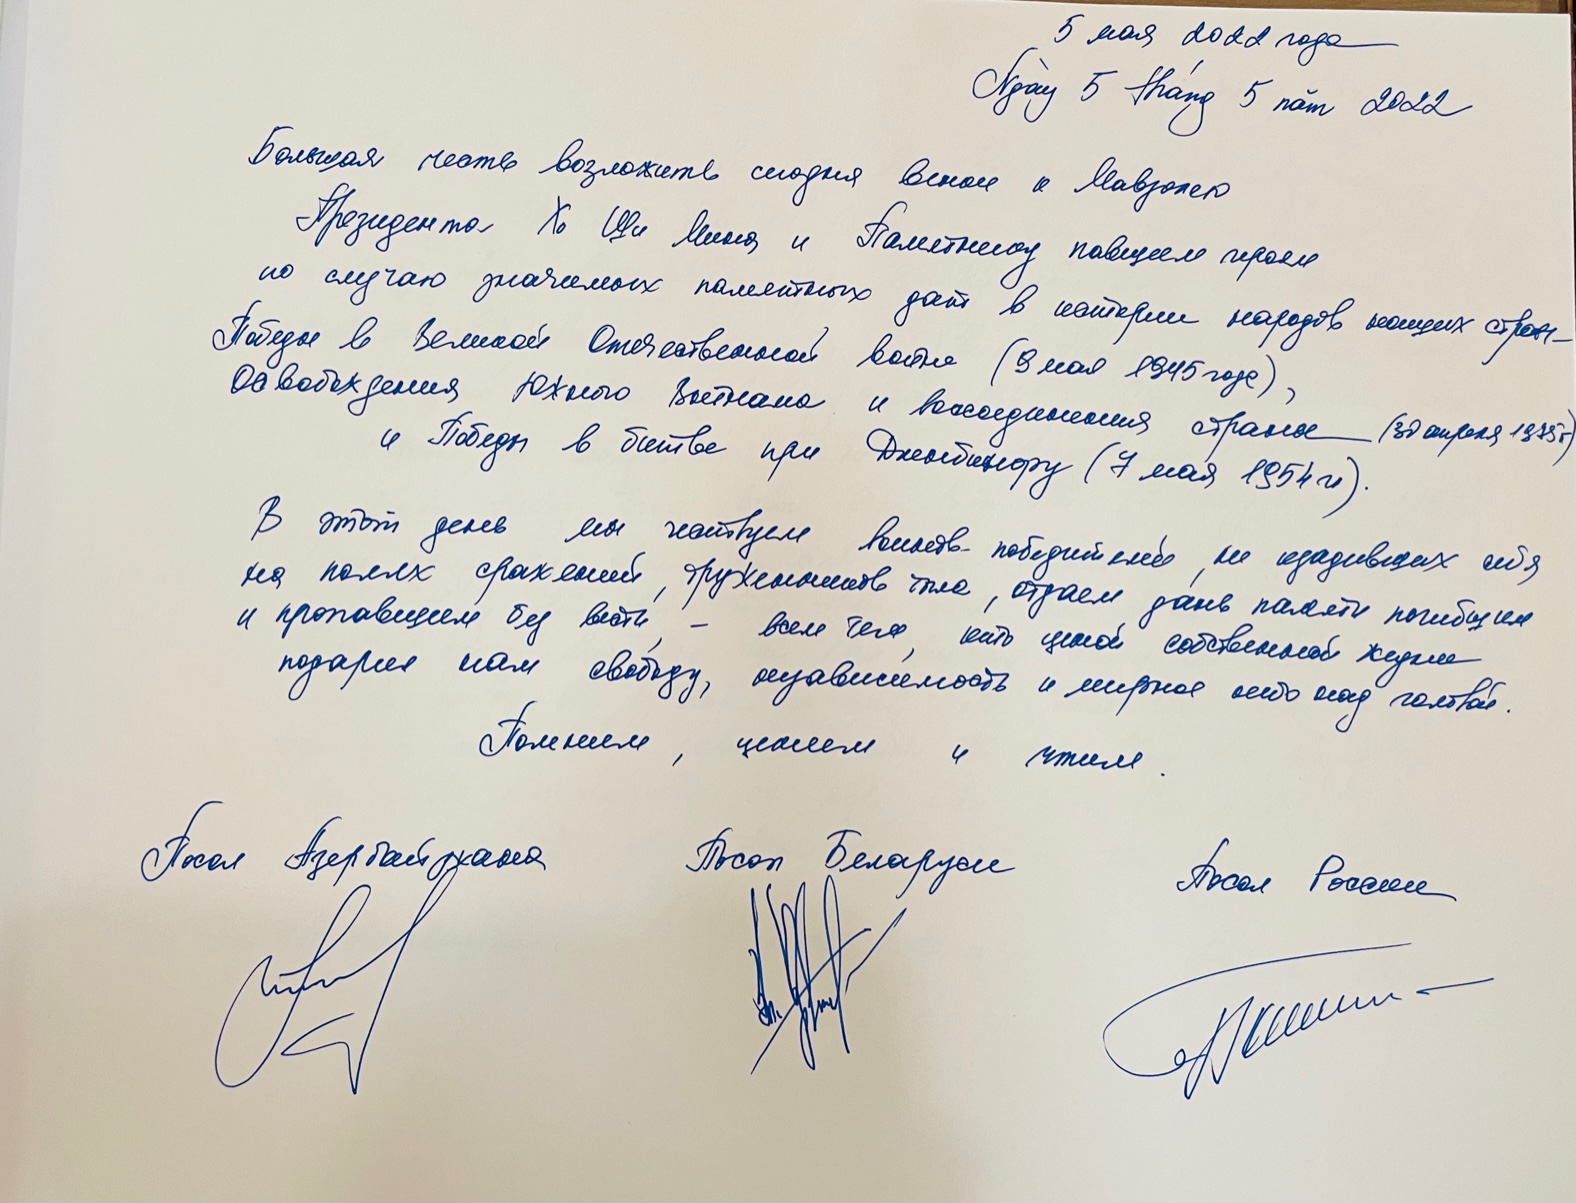 5 мая 2022 года
Ngày 5 tháng 5 năm 2022
Большая честь возложить сегодня венок к Мавзолею
Президента Хо Ши Мина и Памятнику павшим героям
по случаю значимых памятных дат в истории народов наших стран –
Победы в Великой Отечественной войне (9 мая 1945 года),
Освобождения Южного Вьетнама и воссоединения страны (30 апреля 1975 г)
и Победы в битве при Дьенбьенфу (7 мая 1954 г).
В этот день мы чествуем воинов-победителей, не щадивших себя
на полях сражений, тружеников тыла, отдаем дань памяти погибшим
и пропавшим без вести, – всем тем, кто ценой собственной жизни
подарил нам свободу, независимость и мирное небо над головой.
Помним, ценим и чтим.
Посол Азербайджана Посол Беларуси Посол России